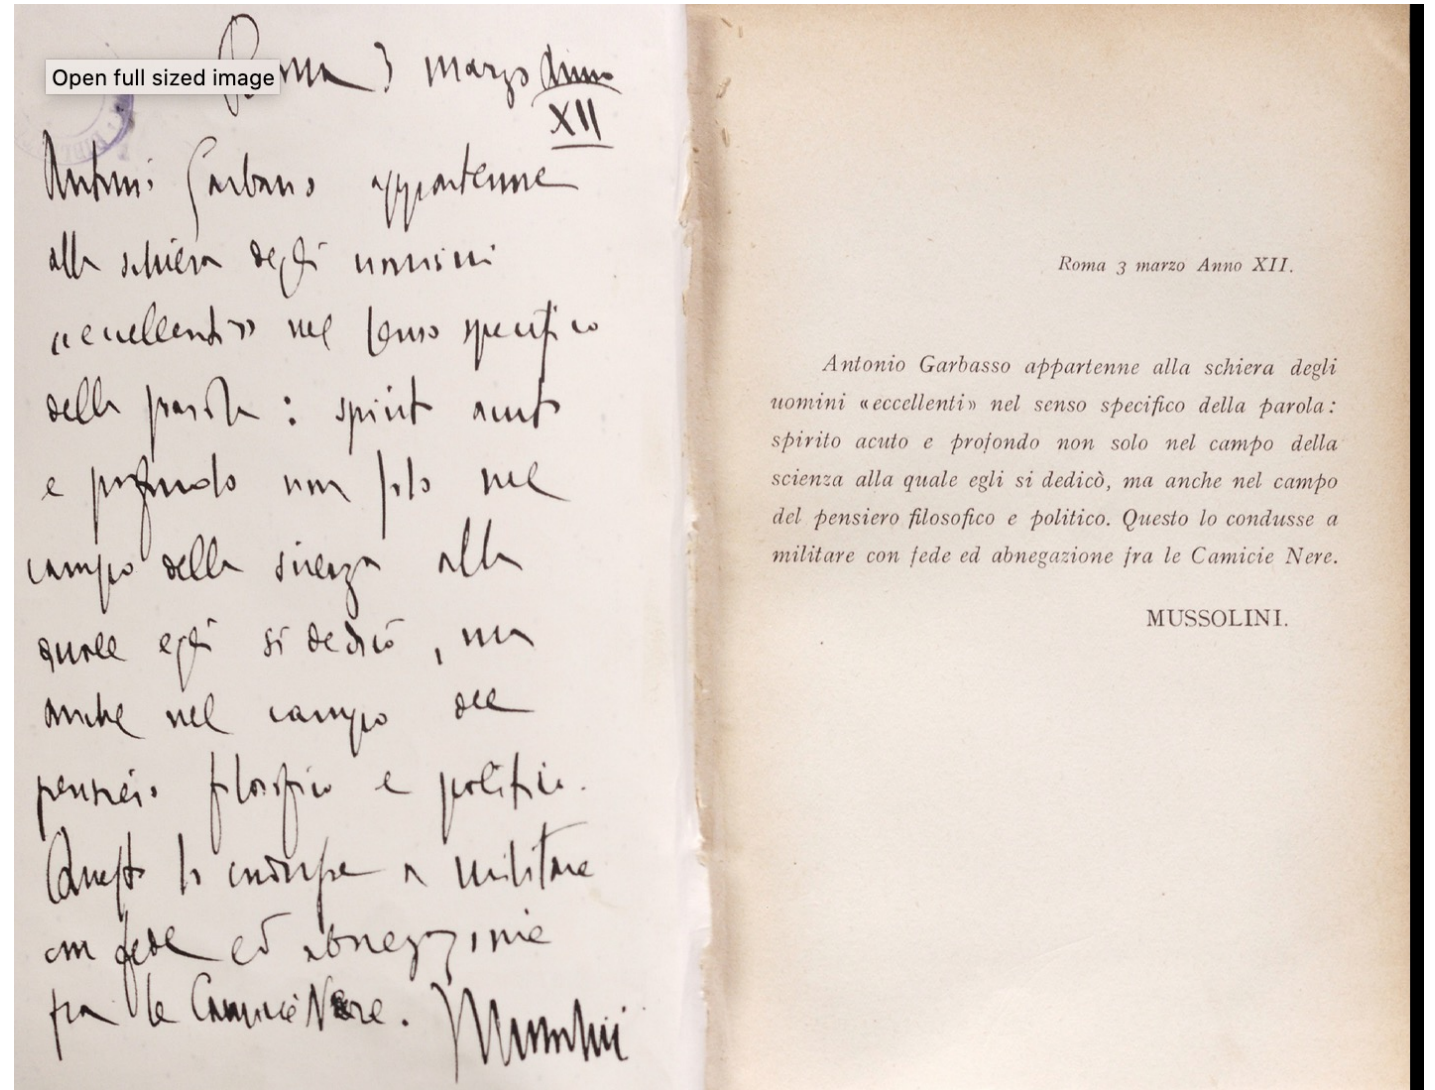 Open full sized image
Roma 3 marzo Anno
XII
Antonio Garbasso appartenne
alla schiera degli uomini
«eccellenti» nel senso specifico
della parola: spirito acuto
e profondo non solo nel
campo della scienza alla
quale egli si dedicò, ma
anche nel campo del
pensiero filosofico e politico.
Questo lo condusse a militare
con fede ed abnegazione
fra le Camicie Nere. Mussolini
Roma 3 marzo Anno XII.
Antonio Garbasso appartenne alla schiera degli
uomini «eccellenti» nel senso specifico della parola:
spirito acuto e profondo non solo nel campo della
scienza alla quale egli si dedicò, ma anche nel campo
del pensiero filosofico e politico. Questo lo condusse a
militare con fede ed abnegazione fra le Camicie Nere.
MUSSOLINI.